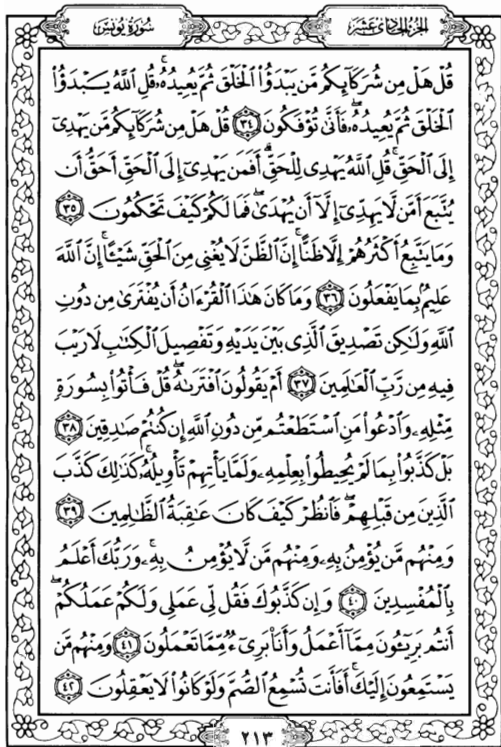 سُورَةُ يُونُسَ
الجُزءُ الحَادِي عَشَرَ
قُلْ هَلْ مِن شُرَكَآئِكُم مَّن يَبْدَؤُا۟ ٱلْخَلْقَ ثُمَّ يُعِيدُهُۥۚ قُلِ ٱللَّهُ يَبْدَؤُا۟
ٱلْخَلْقَ ثُمَّ يُعِيدُهُۥۖ فَأَنَّىٰ تُؤْفَكُونَ ٣٤ قُلْ هَلْ مِن شُرَكَآئِكُم مَّن يَهْدِىٓ
إِلَى ٱلْحَقِّۚ قُلِ ٱللَّهُ يَهْدِى لِلْحَقِّۗ أَفَمَن يَهْدِىٓ إِلَى ٱلْحَقِّ أَحَقُّ أَن
يُتَّبَعَ أَمَّن لَّا يَهِدِّىٓ إِلَّآ أَن يُهْدَىٰۖ فَمَا لَكُمْ كَيْفَ تَحْكُمُونَ ٣٥
وَمَا يَتَّبِعُ أَكْثَرُهُمْ إِلَّا ظَنًّاۚ إِنَّ ٱلظَّنَّ لَا يُغْنِى مِنَ ٱلْحَقِّ شَيْـًٔاۚ إِنَّ ٱللَّهَ
عَلِيمٌۢ بِمَا يَفْعَلُونَ ٣٦ وَمَا كَانَ هَـٰذَا ٱلْقُرْءَانُ أَن يُفْتَرَىٰ مِن دُونِ
ٱللَّهِ وَلَـٰكِن تَصْدِيقَ ٱلَّذِى بَيْنَ يَدَيْهِ وَتَفْصِيلَ ٱلْكِتَـٰبِ لَا رَيْبَ
فِيهِ مِن رَّبِّ ٱلْعَـٰلَمِينَ ٣٧ أَمْ يَقُولُونَ ٱفْتَرَىٰهُۖ قُلْ فَأْتُوا۟ بِسُورَةٍ
مِّثْلِهِۦ وَٱدْعُوا۟ مَنِ ٱسْتَطَعْتُم مِّن دُونِ ٱللَّهِ إِن كُنتُمْ صَـٰدِقِينَ ٣٨
بَلْ كَذَّبُوا۟ بِمَا لَمْ يُحِيطُوا۟ بِعِلْمِهِۦ وَلَمَّا يَأْتِهِمْ تَأْوِيلُهُۥۚ كَذَٰلِكَ كَذَّبَ
ٱلَّذِينَ مِن قَبْلِهِمْۖ فَٱنظُرْ كَيْفَ كَانَ عَـٰقِبَةُ ٱلظَّـٰلِمِينَ ٣٩
وَمِنْهُم مَّن يُؤْمِنُ بِهِۦ وَمِنْهُم مَّن لَّا يُؤْمِنُ بِهِۦۚ وَرَبُّكَ أَعْلَمُ
بِٱلْمُفْسِدِينَ ٤٠ وَإِن كَذَّبُوكَ فَقُل لِّى عَمَلِى وَلَكُمْ عَمَلُكُمْۖ
أَنتُم بَرِيٓـُٔونَ مِمَّآ أَعْمَلُ وَأَنَا۠ بَرِىٓءٌ مِّمَّا تَعْمَلُونَ ٤١ وَمِنْهُم مَّن
يَسْتَمِعُونَ إِلَيْكَۚ أَفَأَنتَ تُسْمِعُ ٱلصُّمَّ وَلَوْ كَانُوا۟ لَا يَعْقِلُونَ ٤٢
٢١٣